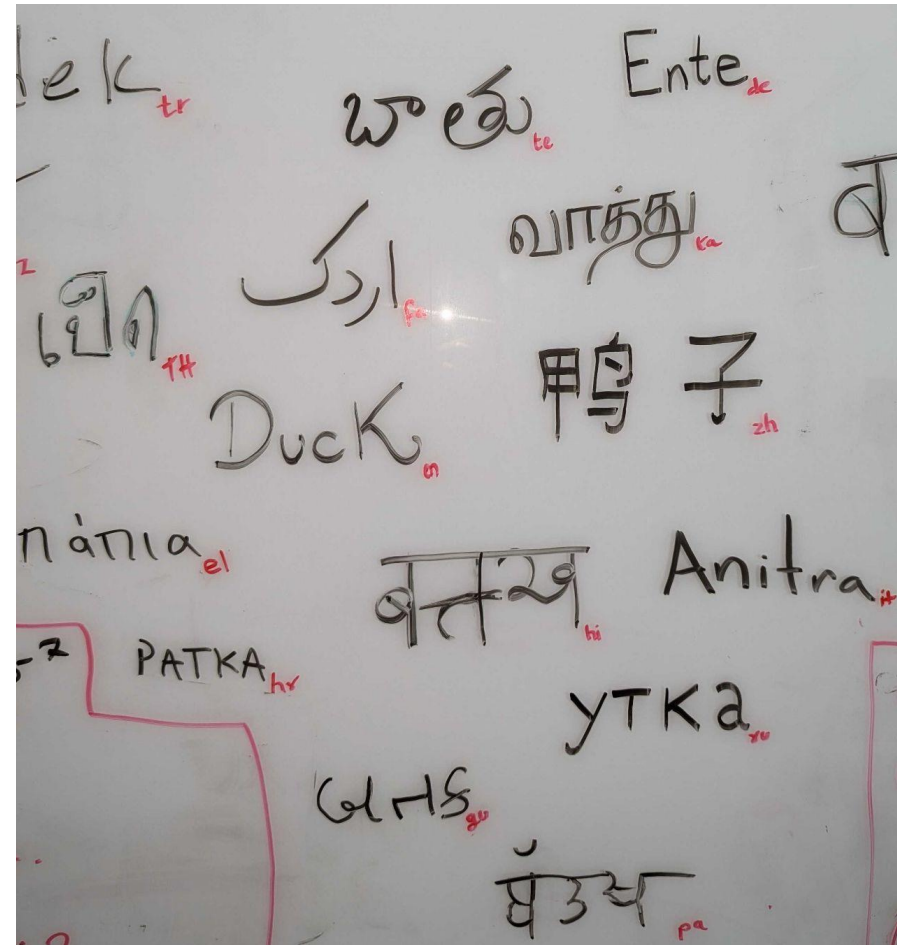 tr
బాతు te
Ente de
வாத்து ta
اردک fa
เป็ด TH
鸭子 zh
Duck en
πάπια el
बत्तख hi
Anitra it
PATKA hr
утка ru
બતક gu
ਬੱਤਖ pa